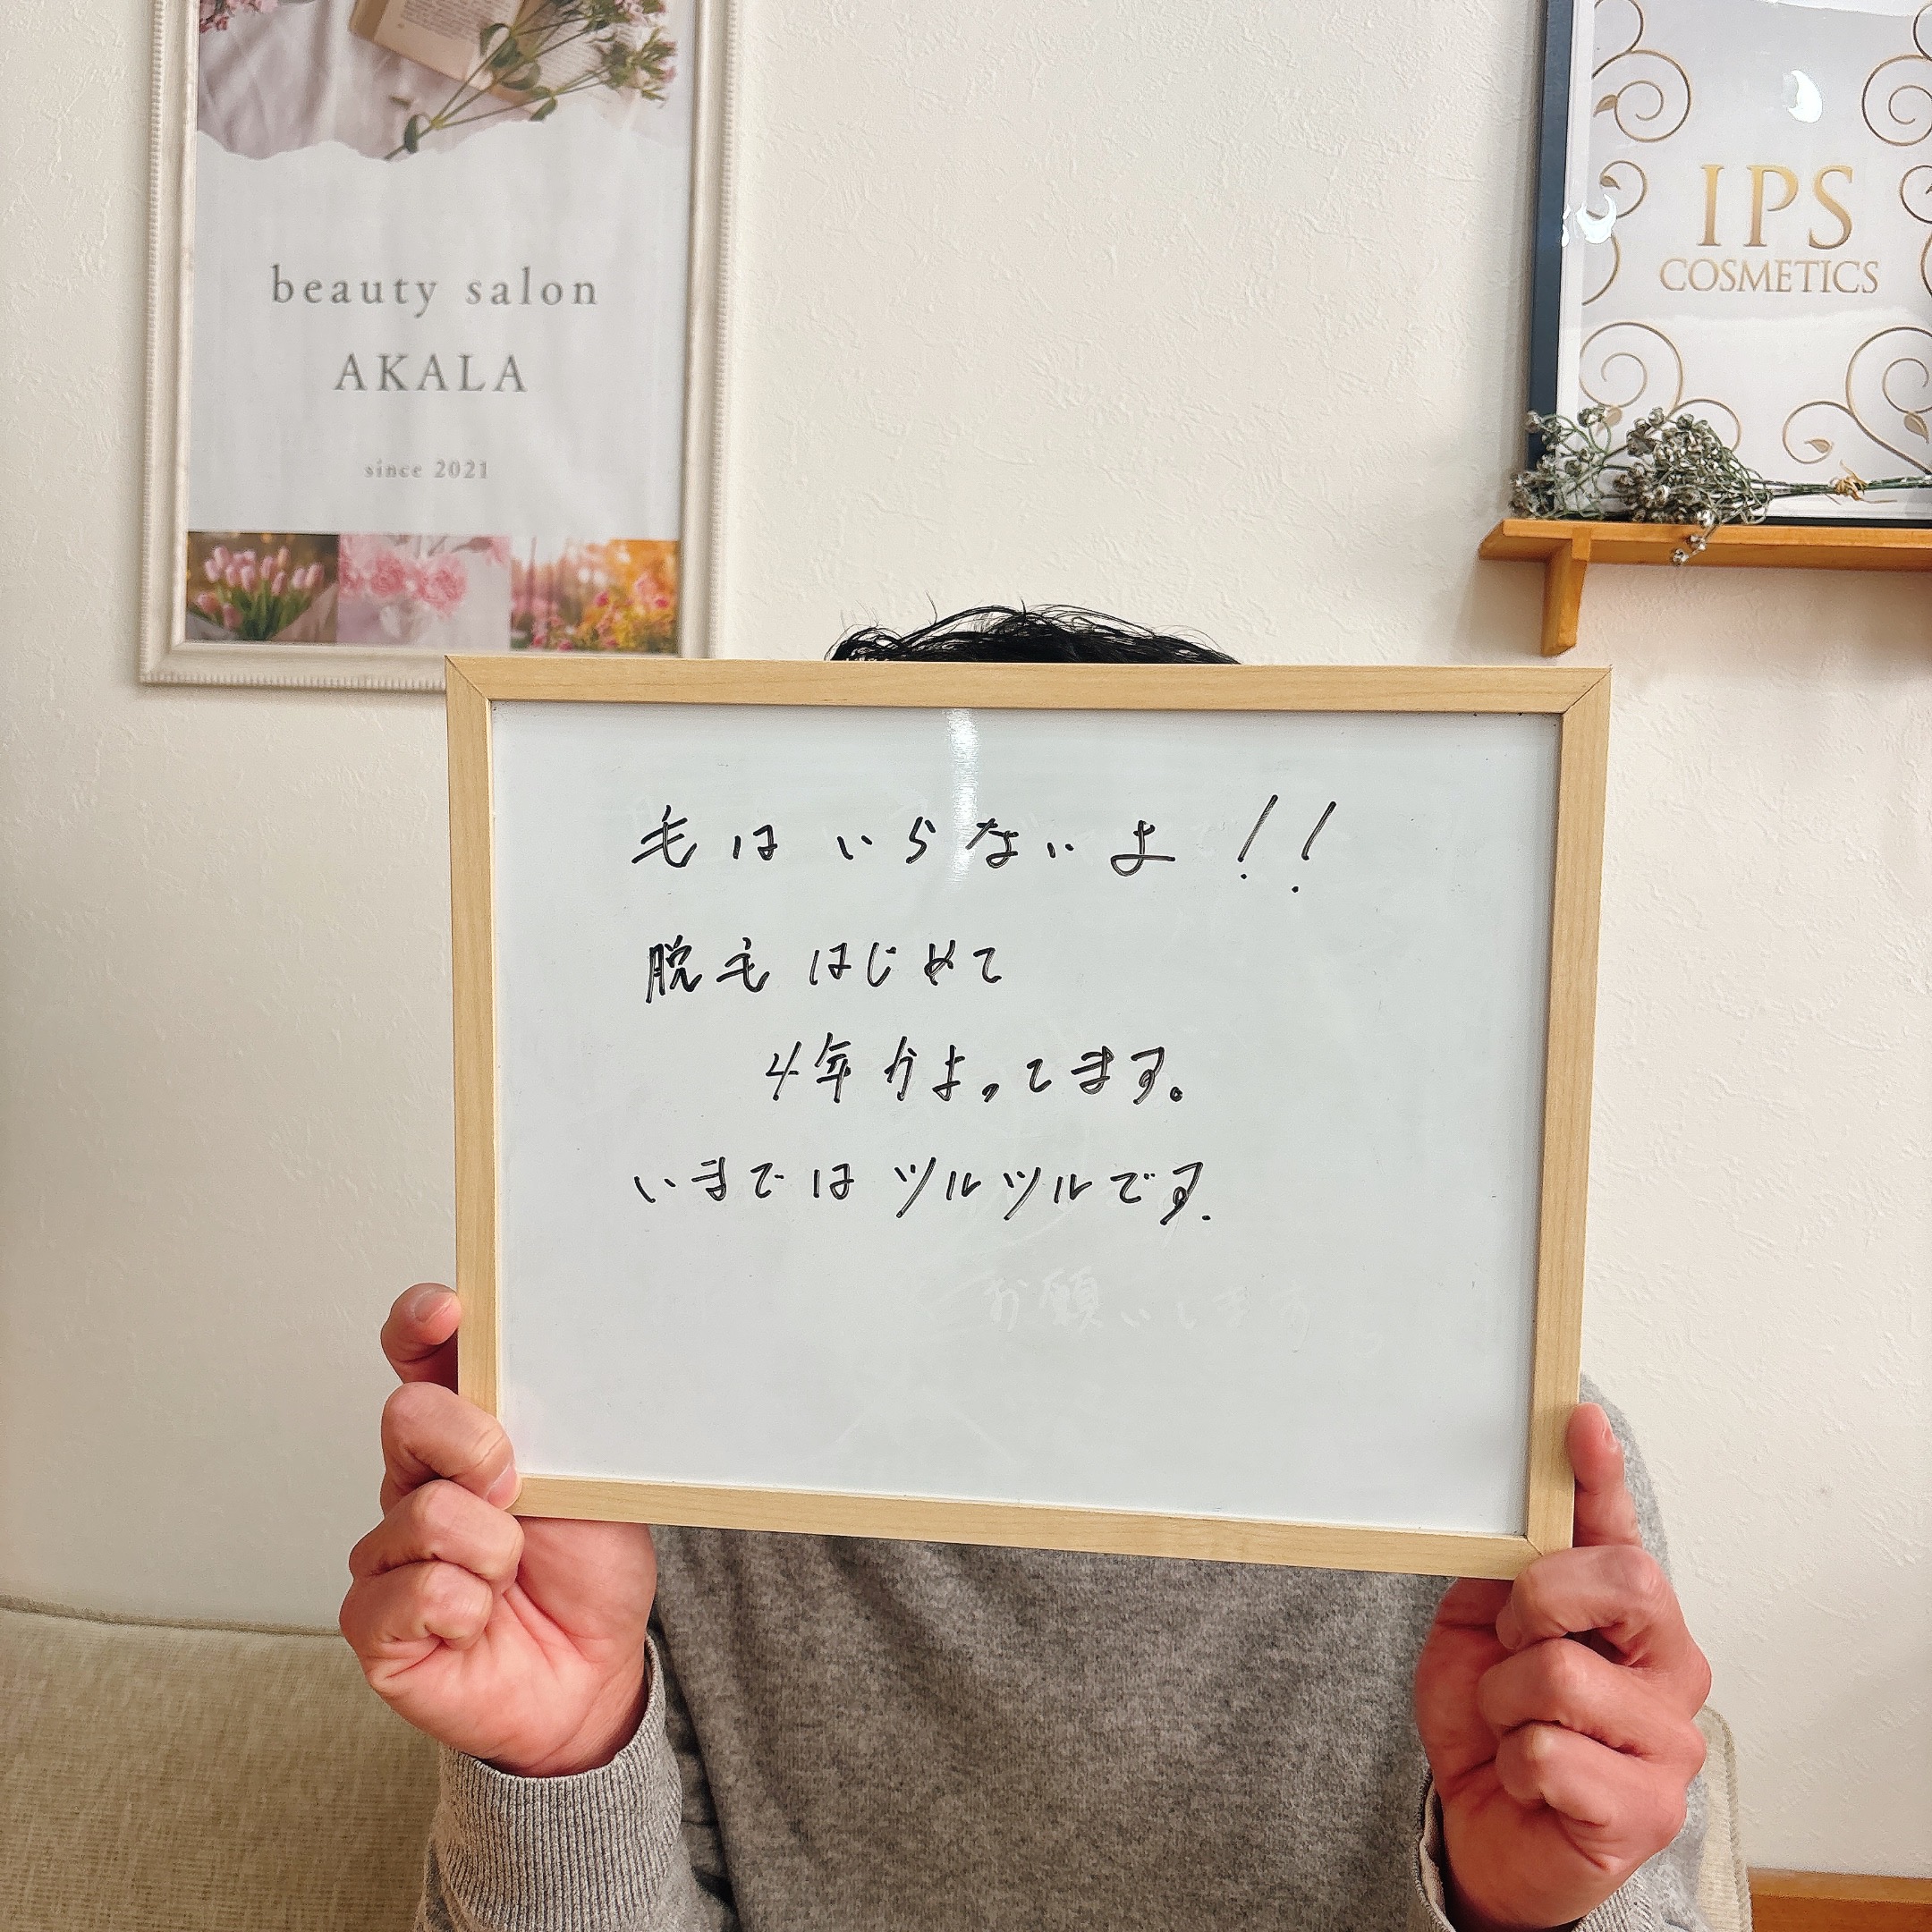 beauty salon
AKALA
since 2021
IPS
COSMETICS
毛はいらないよ!!
脱毛はじめて
4年かよってます。
いまではツルツルです.
お願いします